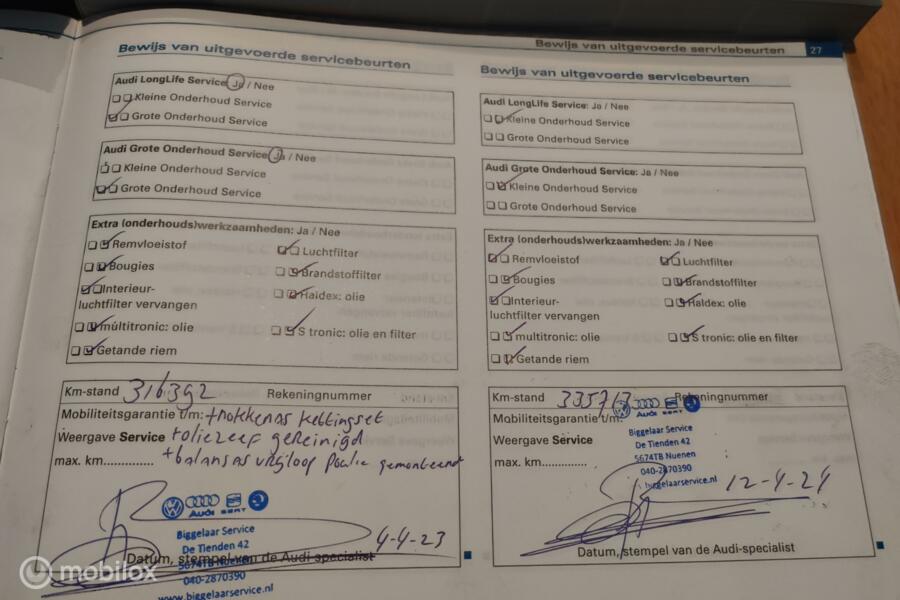 Bewijs van uitgevoerde servicebeurten
Audi LongLife Service: Ja / Nee
Kleine Onderhoud Service
Grote Onderhoud Service
Audi Grote Onderhoud Service: Ja / Nee
Kleine Onderhoud Service
Grote Onderhoud Service
Extra (onderhouds)werkzaamheden: Ja / Nee
Remvloeistof
Luchtfilter
Bougies
Brandstoffilter
Interieur-
luchtfilter vervangen
Haldex: olie
multitronic: olie
S tronic: olie en filter
Getande riem
Km-stand 316392
Rekeningnummer
Mobiliteitsgarantie t/m: + nokkenas kettingset
Weergave Service + oliezeef gereinigd
max. km............... + balansas vrijloop poelie gemonteerd
Audi SEAT
Biggelaar Service
De Tienden 42
5674TB Nuenen
040-2870390
www.biggelaarservice.nl
4-4-23
Datum, stempel van de Audi-specialist
Bewijs van uitgevoerde servicebeurten 27
Bewijs van uitgevoerde servicebeurten
Audi LongLife Service: Ja / Nee
Kleine Onderhoud Service
Grote Onderhoud Service
Audi Grote Onderhoud Service: Ja / Nee
Kleine Onderhoud Service
Grote Onderhoud Service
Extra (onderhouds)werkzaamheden: Ja / Nee
Remvloeistof
Luchtfilter
Bougies
Brandstoffilter
Interieur-
luchtfilter vervangen
Haldex: olie
multitronic: olie
S tronic: olie en filter
Getande riem
Km-stand 335713
Rekeningnummer
Mobiliteitsgarantie t/m:
Weergave Service
max. km...............
Audi SEAT
Biggelaar Service
De Tienden 42
5674TB Nuenen
040-2870390
biggelaarservice.nl
12-4-24
Datum, stempel van de Audi-specialist
mobilox